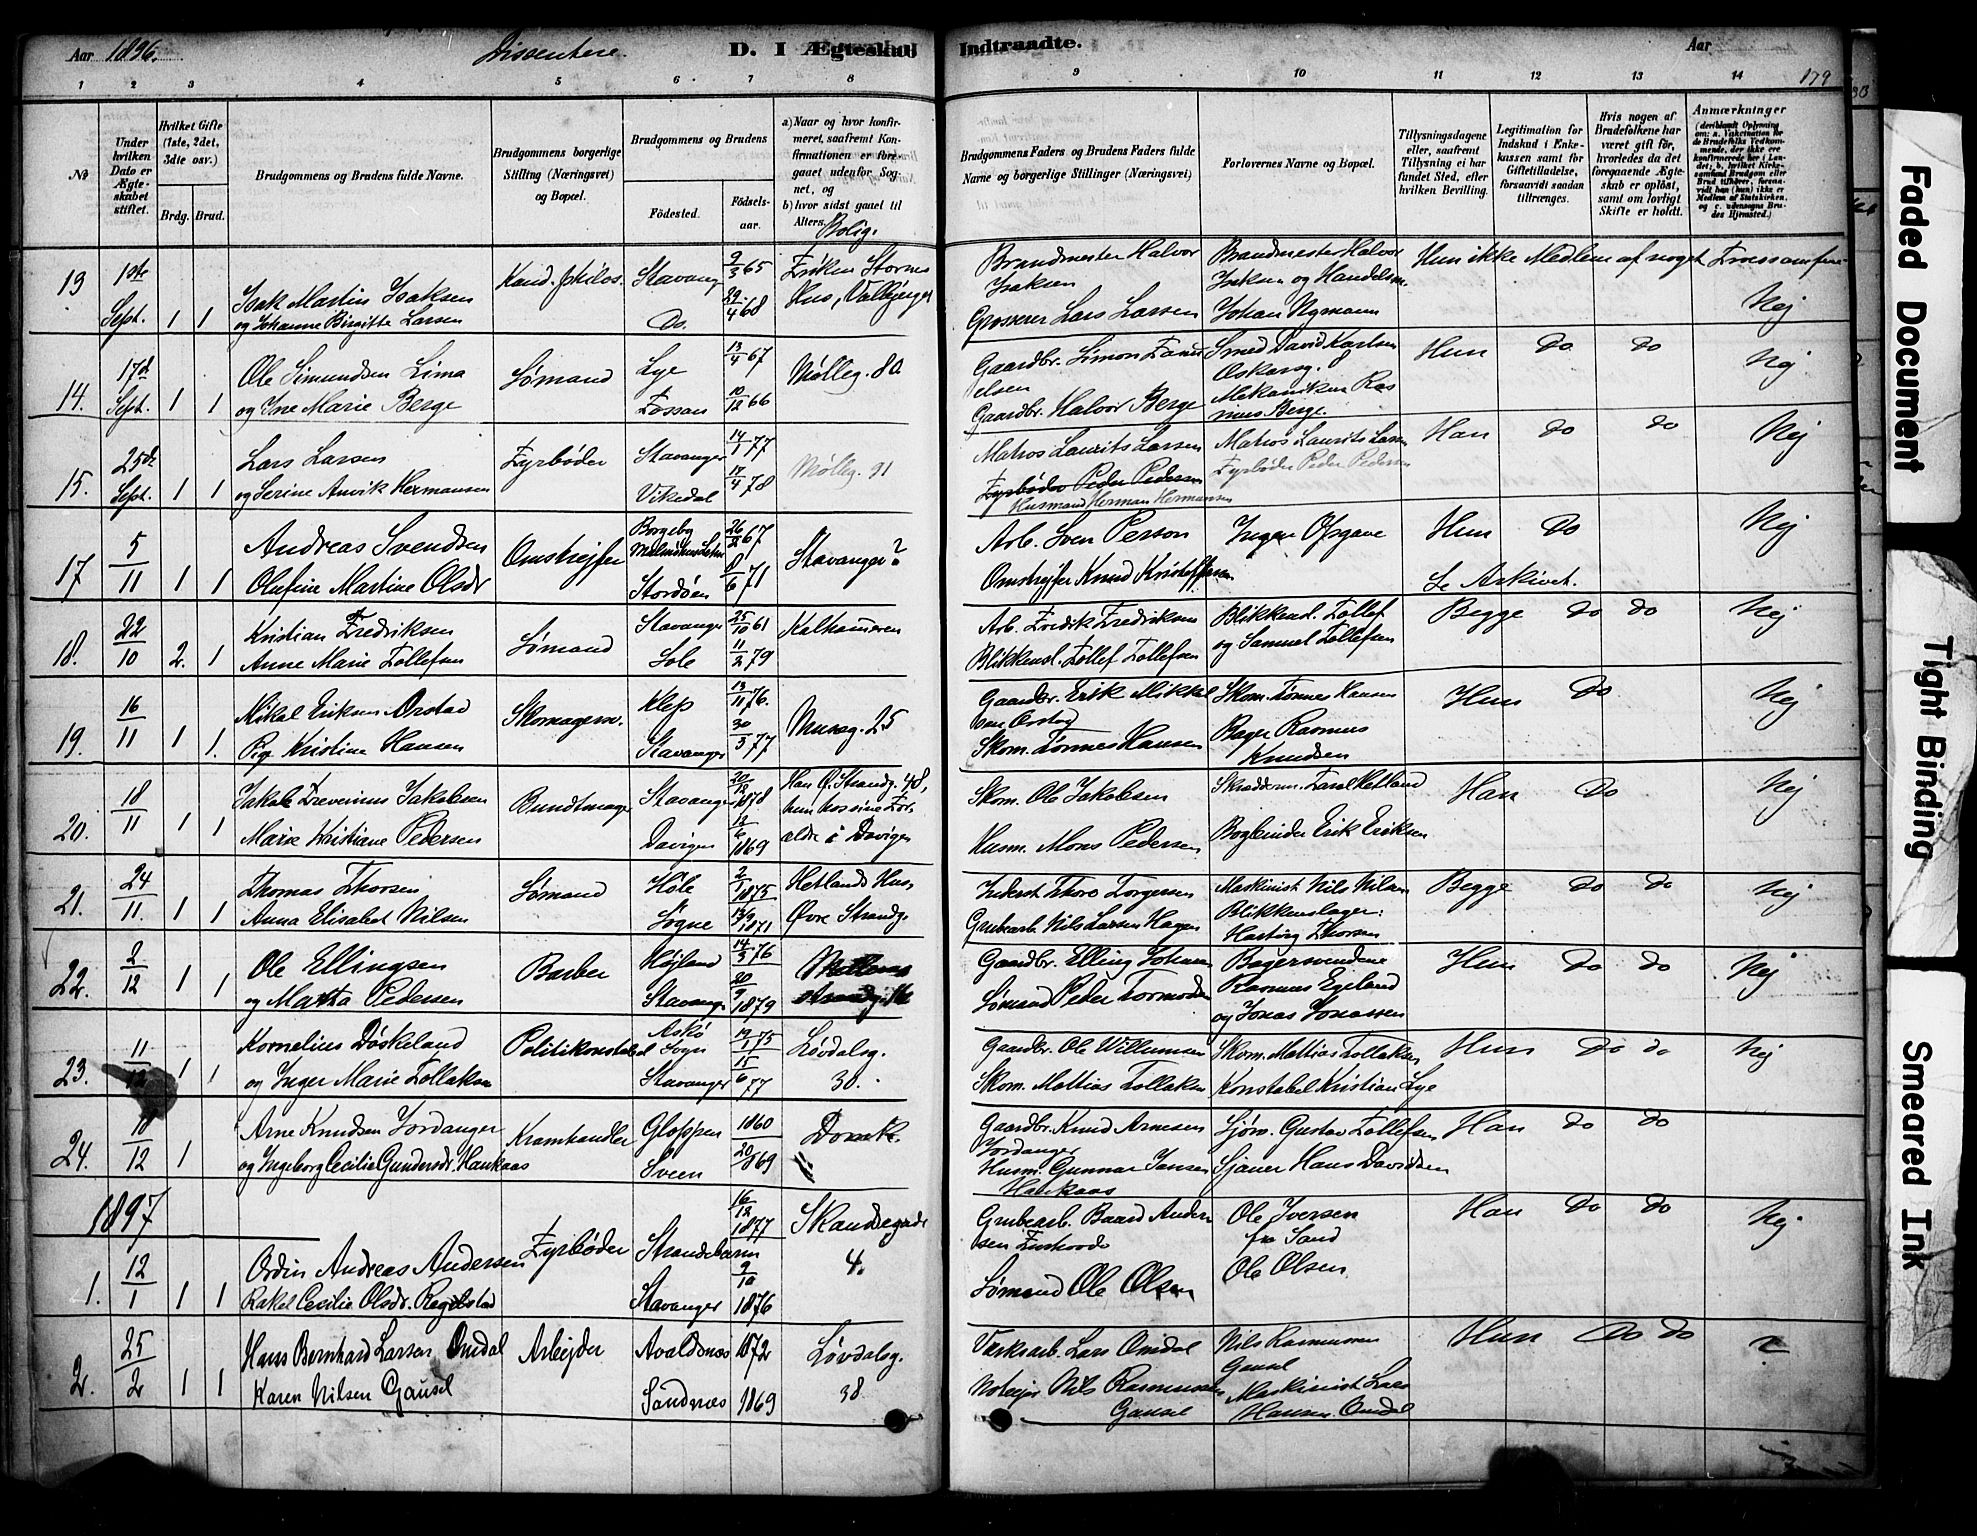 Aar 1896.
Dissentere.
D. I Ægteskab
Indtraadte.
Aar
179
1 2 3 4 5 6 7 8 9 10 11 12 13 14
No
Under hvilken Dato er Ægteskabet stiftet.
Hvilket Gifte (1ste, 2det, 3die osv.)
Brdg. Brud.
Brudgommens og Brudens fulde Navne.
Brudgommens borgerlige Stilling (Næringsvei) og Bopæl.
Brudgommens og Brudens
Födested.
Födselsaar.
a) Naar og hvor konfirmeret, saafremt Konfirmationen er foregaaet udenfor Sognet, og
b) hvor sidst gaaet til Alters.
Bolig.
Brudgommens Faders og Brudens Faders fulde Navne og borgerlige Stillinger (Næringsvei)
Forlovernes Navne og Bopæl.
Tillysningsdagene eller, saafremt Tillysning ei har fundet Sted, efter hvilken Bevilling.
Legitimation for Indskud i Enkekassen samt for Giftetilladelse, forsaavidt saadan tiltrænges.
Hvis nogen af Brudefolkene har været gift før, hvorledes da det foregaaende Ægteskab er oplöst, samt om lovligt Skifte er holdt.
Anmærkninger
13 1ste Sept. 1 1
Isak Martin Isaksen
og Johanne Birgitte Larsen
Kand. philos.
Stavang
Do.
9/3 65
29/4 68
Brandmester Halvor Isaksen
Grosserer Lars Larsen
Brandmester Halvor
Johan Nymann
Hun ikke Medlem af noget
Nej
14. 17d Sept. 1 1
Ole Simundsen Lima
og Ine Marie Berge
Sømand
Lye
Fossan
13/4 67
10/12 66
Mølleg. 80.
Gaardbr. Simon
Gaardbr. Halvor Berge
Smed David Karlsen
Oskarsg. 8
Mekanikus Rasmus Berge.
Hun Do Do Nej
15. 25de Sept. 1 1
Lars Larsen
og Serine Anvik Hermansen
Fyrbøder
Stavanger
Vikedal
14/1 77
17/4 78
Mølleg. 91
Matros Laurits Larsen
Fyrbøder Peder Pedersen
Husmand Herman Hermansen
Matros Laurits Larsen
Fyrbøder Peder Pedersen
Han Do Do Nej
17 5/11 1 1
Andreas Svendsen
Olufine Martine Olsdr
Omstrejfer
Stordøen
26/2 67
8/6 71
Stavanger?
Arb. Sven Person
Omstrejfer Knud Kristoffersen
Ingen Opgave
Hun Do
Se Arkivet.
Nej
18. 22/10 2. 1
Kristian Fredriksen
Anne Marie Tollefsen
Sømand
Stavange
Sole
25/10 61
11/2 79
Kalhameren
Arb. Fredik Fredriksen
Blikkensl. Tollef Tollefsen
Blikkensl. Tollef
og Samuel Tollefsen
Begge Do Do Nej
19. 16/11 1 1.
Mikal Eriksen Orstad
Pige Kristine Hansen
Skomagersv.
Klep
Stavanger
13/11 76.
30/3 77
Mussg. 25
Gaardbr. Erik Mikkelsen Orstad
Skom. Tønnes Hansen
Skom. Tønnes Hansen
Bager Rasmus
Knudsen
Hun Do Nej
20. 18/11 1 1
Jakob Severinus Jakobsen
Marie Kristiane Pedersen
Bundtmage
Stavange
Davigen
20/12 1878.
12/6 1869
Han Ø. Strandg. 48,
hun hos sine Forældre i Davigen
Skom. Ole Jakobsen
Husm. Mons Pedersen
Bogbinder Erik Eriksen
Han Do Nej
21. 24/11. 1 1
Thomas Thorsen
Anna Elisabet Nilsen
Sømand
Høle
Sogne
2/1 1875
13/9 1871
Hetlands Hus,
Øvre Strandg.
Inderst Thore Torgersen
Grubearb. Nils Larsen Hagen
Maskinist Nils Nilsen
Blikkenslager:
Hartvig Thorsen
Begge Do Do Nej
22. 2/12 1 1
Ole Ellingsen
og Martha Pedersen
Barber
Højland
Stavang.
14/3 76
20/9 1879
Gaardbr. Elling
Sømand Peder Tormodsen
Bagersvendene
Rasmus Egeland
og Jonas Jonassen
Hun Do Do Nej
23. 11/12 1 1
Kornelius Døskeland
og Inger Marie Tollaksen
Politikonstabel
Askø Sogn
Stavanger
19/1 75
15/6 77
Løvdalsg.
30.
Gaardbr. Ole Willumsen
Skom. Mattias Tollaksen
Skom. Mattias Tollaksen
Konstabel Kristian Lye
Hun Do Do Nej
24. 18/12 1
Arne Knudsen Jordanger
og Ingeborg Cecilie Gundersdr. Haukaas
Kramhandler
Gloppen
Sveen
1860
20/ 869
Domk.
Gaardbr. Knud Arnesen
Jordanger
Husm. Gunnar Jansen
Haukaas
Sjøm. Gustav Tollefsen
Sjauer Hans Davidsen
Han Do Do
1897
1. 12/1 1 1
Ordin Andreas Andersen
Rakel Cecilie Olsdr. Regelstad
Fyrbøder
Strandebarm
Stavanger
16/12 1877
9/10 1876
Skandsegade
4.
Grubearb. Baard Andersen
Sømand Ole Olsen
Ole Iversen
fra Sand
Ole Olsen
Han Do Do Nej
2. 25/2 1 1
Hans Bernhard Larsen Omdal
Karen Nilsen Gausel
Arbejder
Avaldsnes
Sandnæs
1872
1869
Løvdalsg.
38.
Værksarb. Lars Omdal
Nils Rasmussen
Gausel
Nils Rasmussen
Gausel
Maskinist Lars
Hansen Omdal
Hun Do Do
Faded Document
Tight Binding
Smeared Ink